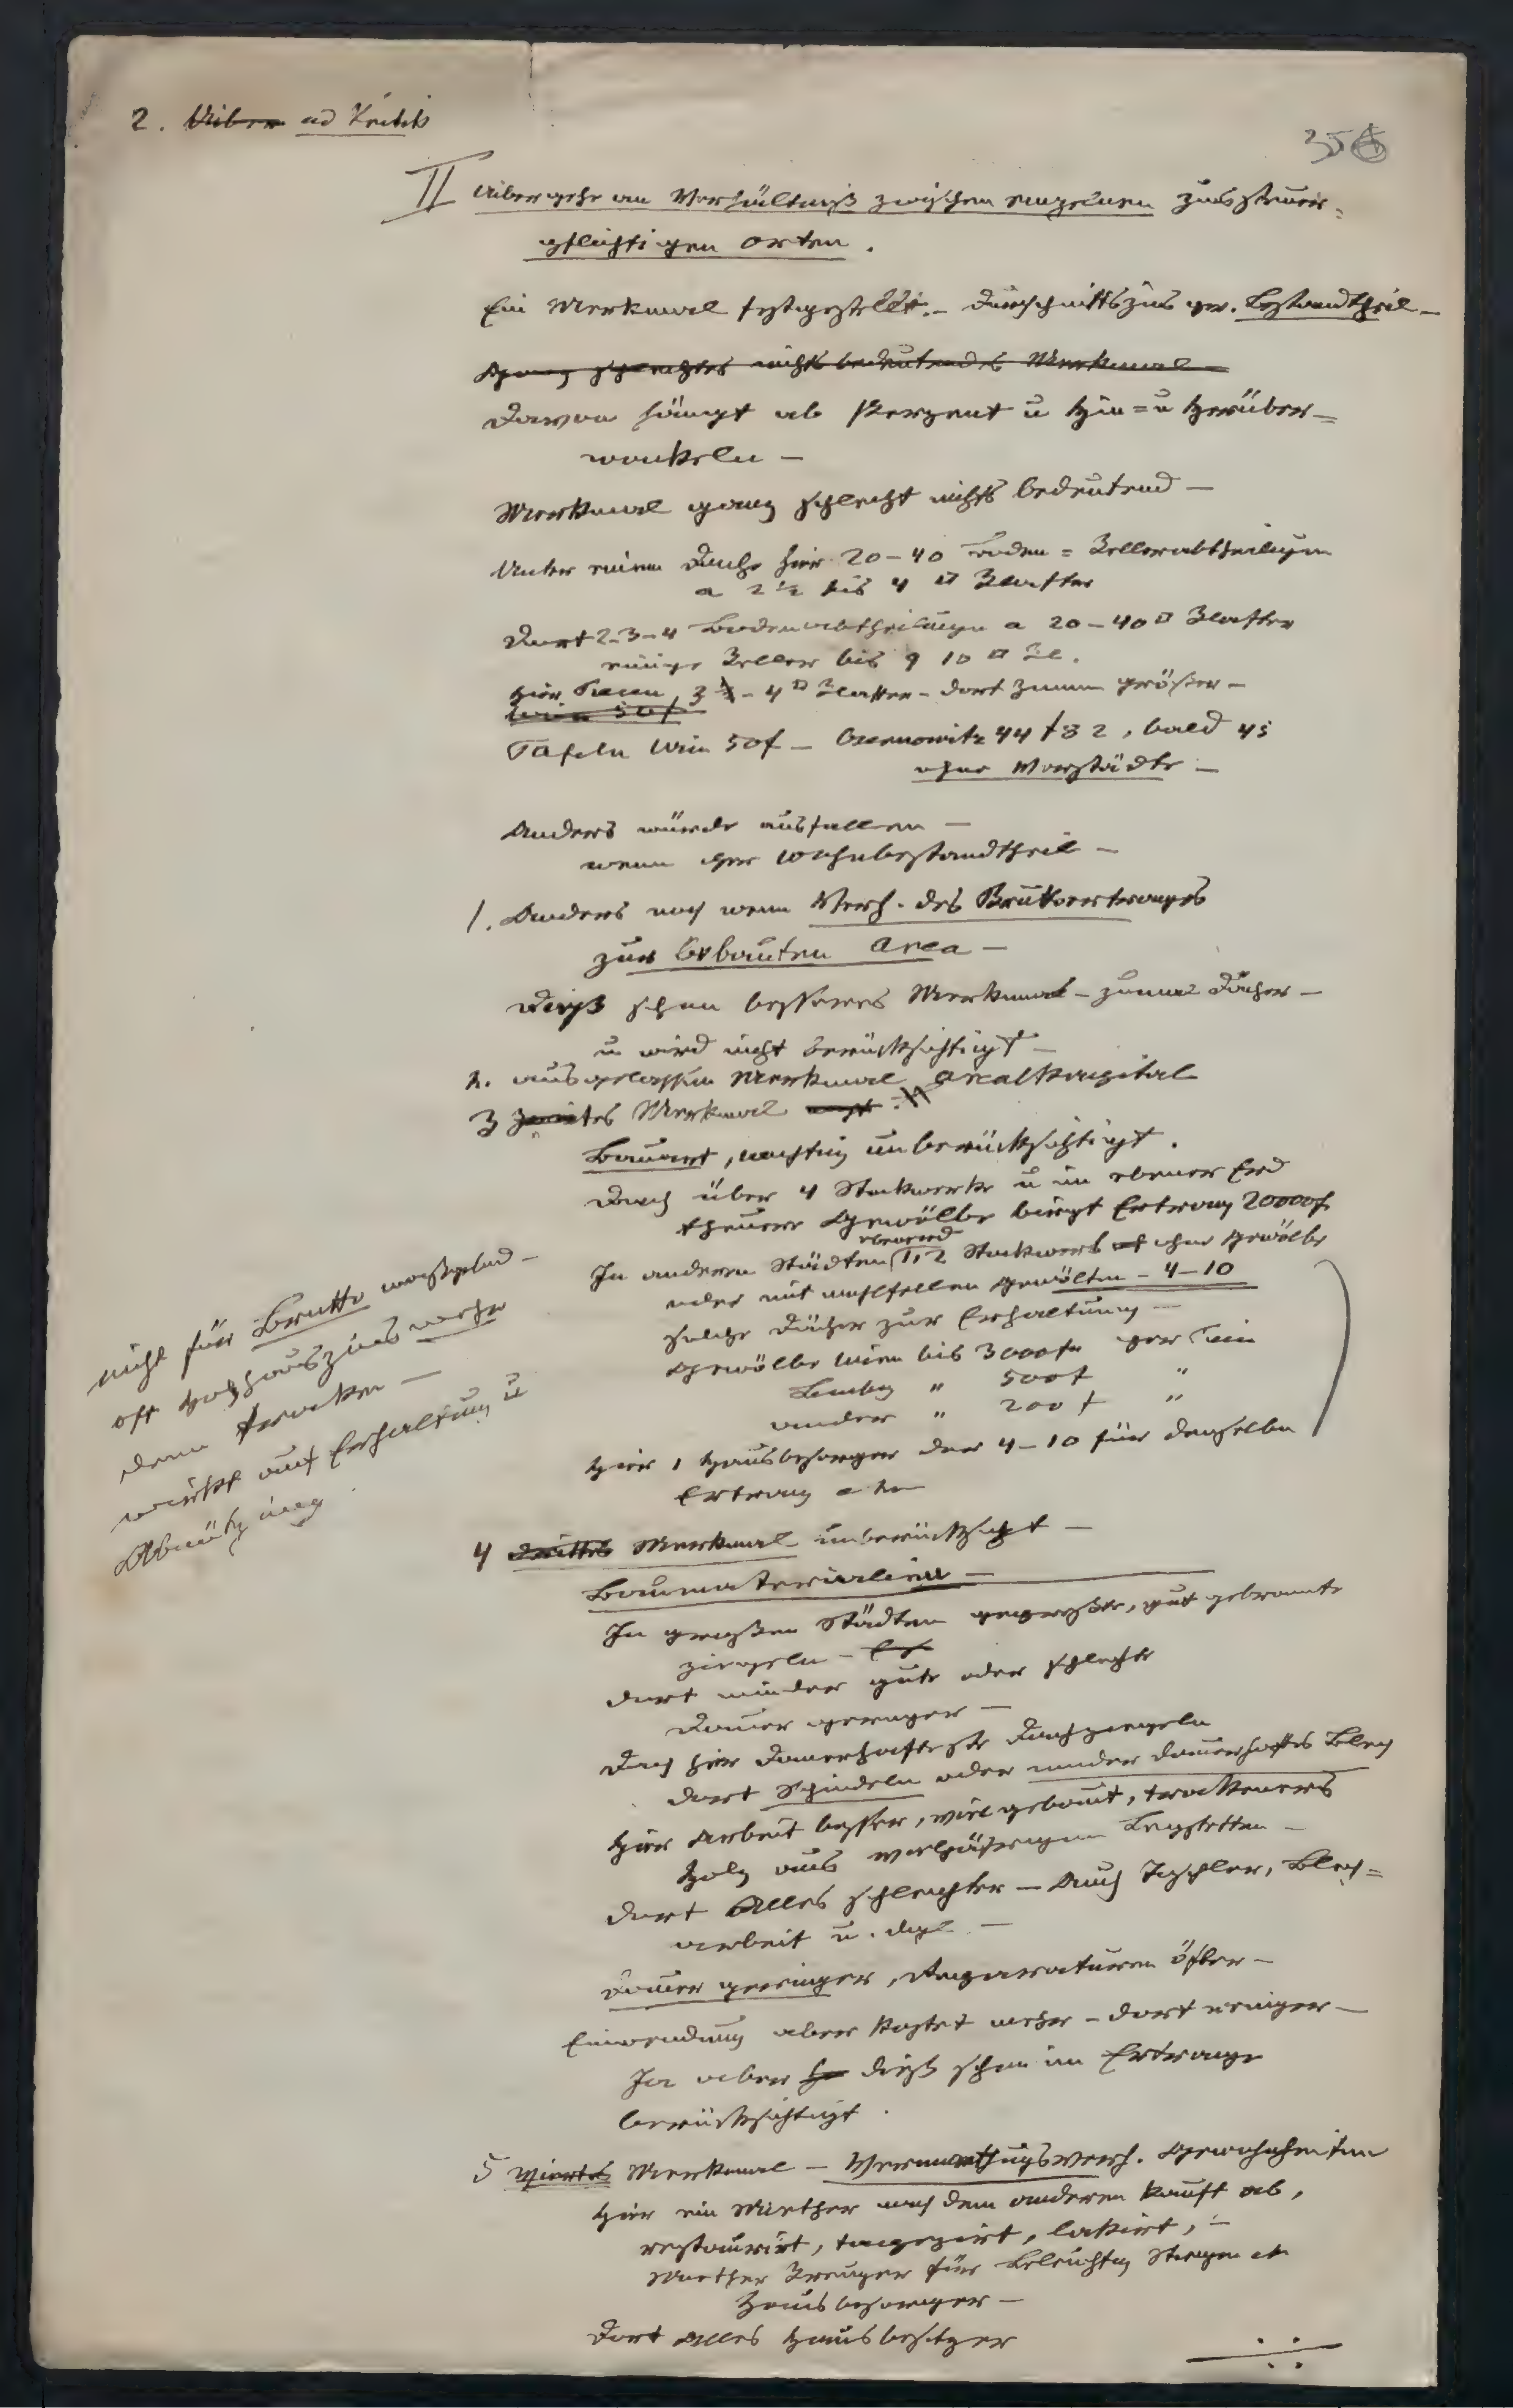 2. Über ad Kritik
356
II Übergehe am Verhältniß zwischen einzelnen zinssteuer=
pflichtigen Orten.
Ein Merkmal festgestellt. – Durchschnittszins per. Bestandtheil –
Ganz schlechtes nichts bedeutendes Merkmal –
Davon hängt ab Perzent u Hin= u Herüber=
wackeln –
Merkmal ganz schlecht nichts bedeutend –
Unter einem Dache hier 20–40 Boden= Kellerabtheilugen
a 2½ bis 4 □ Klafter
Dort 2–3–4 Bodenabtheilungen a 20–40 □ Klafter
einige Keller bis 9 10 □ Kl.
hier 3 – 4 □ Klafter – dort Zimm größer –
Wien 50f
Tafeln Wien 50f – Czernowitz 44 f 82, bald 45
ohne Vorstädte –
Anders würde ausfallen –
wenn per Wohnbestandtheil –
1. Anders noch wenn Verh. des Bruttoertrages
zur bebauten Area –
Dieß schon besseres Merkmal – zumal Dächer –
u wird nicht berücksichtigt –
2. ausgelassen Merkmal Arealkapital
3 zweites Merkmal
Bauart, wichtig unberücksichtigt.
Dach über 4 Stockwerke u im ebener Erd
theuere Gewölbe birgt Ertrag 20000f
ebenerd
In anderen Städten 1, 2 Stockwerk ohne Gewölbe
oder mit wohlfeilen Gewölben – 4–10
solche Dächer zur Erhaltung –
Gewölbe Wien bis 3000f per
Lemberg " 500f "
ander " 200 f "
Hier 1 Hausbesorger dort 4–10 für denselben
Ertrag etc
nicht für Brutto maßgebend –
oft Holzhauszins mehr
dem trocken –
wirkt auf Erhaltung u
Abnützung
4 Drittes Merkmal unberücksichtigt –
Baumaterialien –
In großen Städten gepreßte, gut gebrannte
Ziegeln –
dort minder gute oder schlechte
Dauer geringer –
Dach hier dauerhafteste Dachziegeln
dort Schindeln oder minder dauerhaftes Blech
hier Arbeit besser, viel gebaut, trockeneres
Holz aus vieljährigen Legstetten –
dort Alles schlechter – Auch Tischler, Blech=
arbeit u. dgl –
Dauer geringer, Reparaturen öfter –
Einwendung aber kostet mehr – dort weniger –
Ja aber dieß schon im Ertrage
berücksichtigt.
5 Viertes Merkmal – Vermiethugsverh. Gewohnheiten
Hier ein Miether nach dem anderen kauft ab,
restaurirt, tapezirt, lakirt, –
Miether Kreuzer für Beleuchtg Stiegen etc
Hausbesorger –
Dort Alles Hausbesitzer